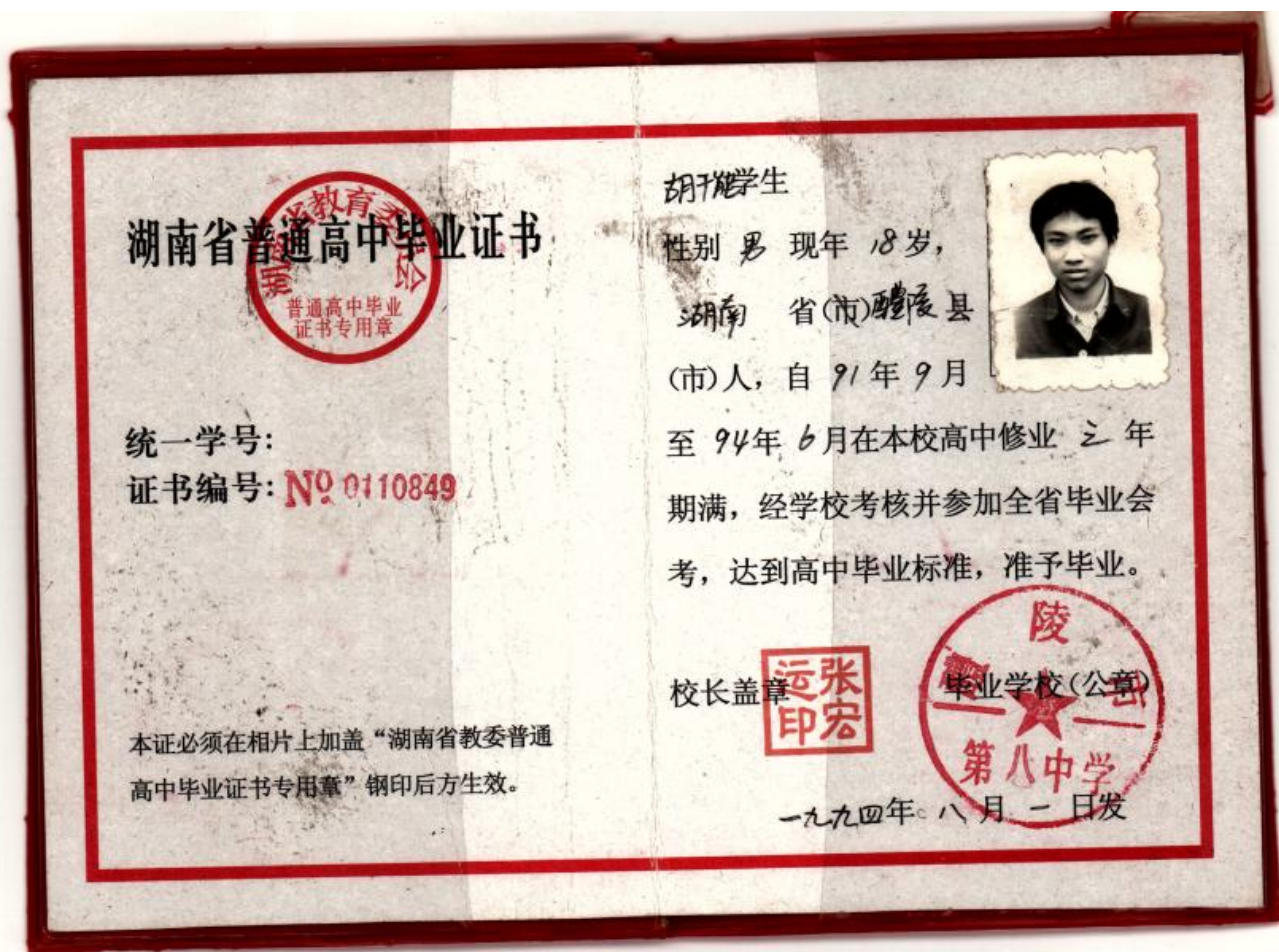 湖南省普通高中毕业证书
湖南省教育委员会
普通高中毕业
证书专用章
统一学号:
证书编号: Nº 0110849
本证必须在相片上加盖“湖南省教委普通
高中毕业证书专用章”钢印后方生效。
胡千能学生
性别 男 现年 18岁,
湖南 省(市)醴陵县
(市)人, 自 91年 9月
至 94年 6月在本校高中修业 三 年
期满, 经学校考核并参加全省毕业会
考, 达到高中毕业标准, 准予毕业。
校长盖章
张宏
运印
毕业学校(公章)
醴陵市
第八中学
一九九四年 八 月 一 日发